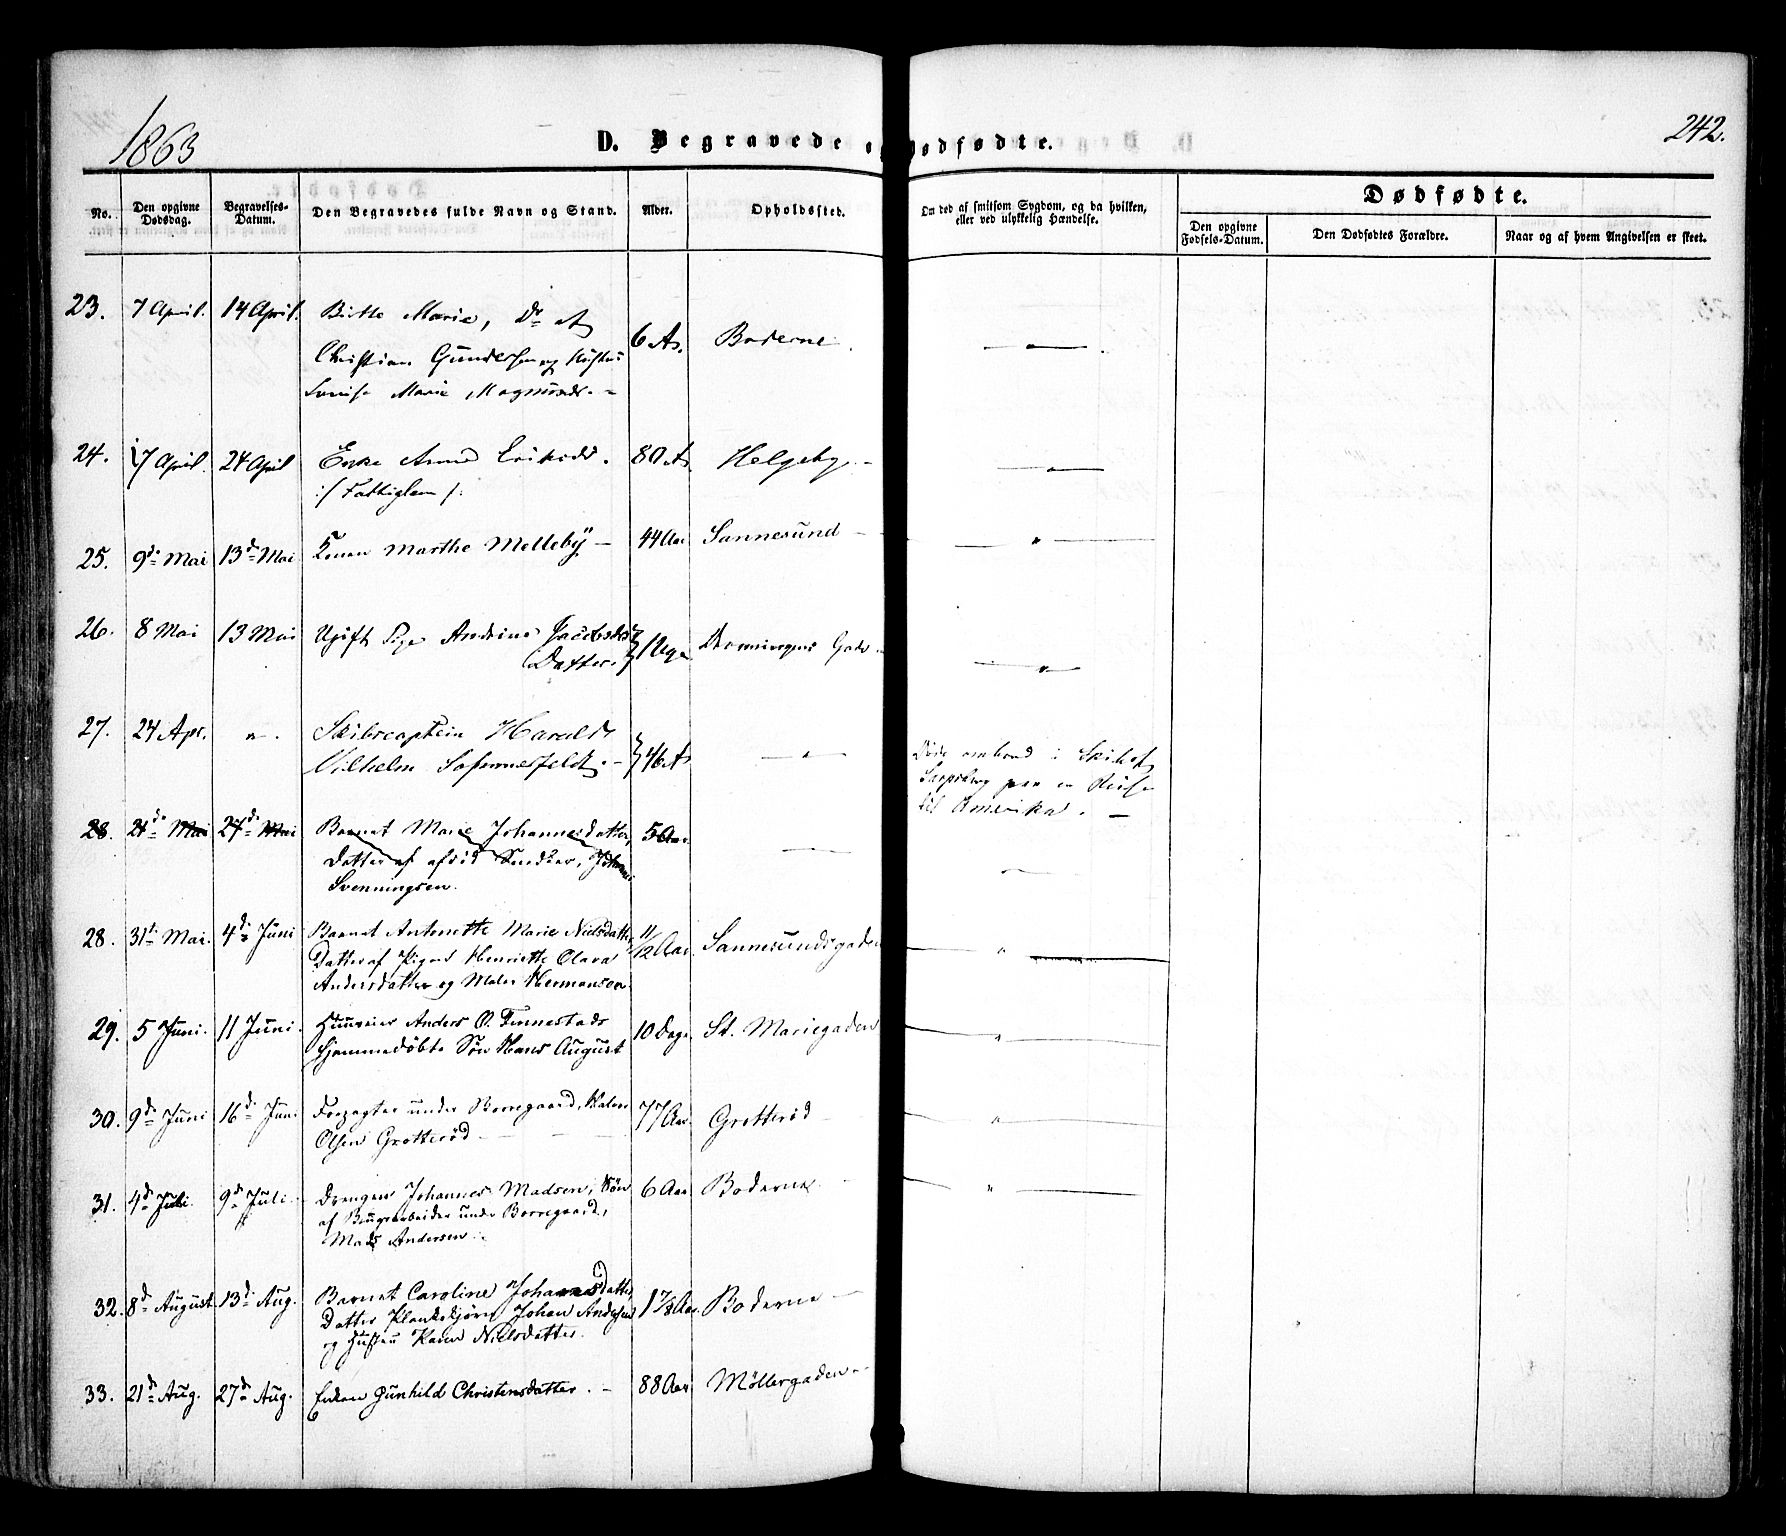 1863
D. Begravede o dødfødte.
242.
No.
Den opgivne Dødsdag.
Begravelses-Datum.
Den Begravedes fulde Navn og Stand.
Alder.
Opholdssted.
Om død af smitsom Sygdom, og da hvilken, eller ved ulykkelig Hændelse.
Dødfødte.
Den opgivne Fødsels-Datum.
Den Dødfødtes Forældre.
Naar og af hvem Angivelsen er skeet.
23. 7 April. 14 April. Birthe Marie, Dr af 6 A. Boderne
Christian Gundersen og Hustru
Lovise Marie Magnusd. -
24. 17 April. 24 April Enke Anne Eriksd. 80 A. Helgeby -
:/ Fattiglem /:
25. 9de Mai 13de Mai Konen Marthe Melleby - 44 Aar Sannesund -
26. 8 Mai 13 Mai Ugift Pige Andrine Jacobsdr 1 Uge Dronningens Gade -
Datter.
27. 24 Apr. " . Skibscaptein Harald
Vilhelm - 46 A "
Døde ombord i Skibet
Sarpsborg paa en Reise
til Amerika. -
28. 21de Mai 27de Mai Barnet Marie Johannesdatter, 5 Aar
Datter af afdød Johannes
Svenningsen.
28. 31te Mai. 4de Juni Barnet Antonette Marie Nielsdatter 11/12 Aar Sannesundsgaden "
Datter af Pigen Henriette Olava
Andersdatter og Maler Hermansen.
29. 5 Juni. 11 Juni. Huuseier Anders O. Tennestads 10 Dage St. Mariegaden "
hjemmedøbte Søn Hans August
30. 9de Juni 16de Juni Forpagter under Borregaard, 77 Aar. Grotterød "
Olsen Grotterød
31. 4de Juli. 9de Juli. Drengen Johannes Madsen, Søn 6 Aar Boderne "
af Brugsarbeider under Borregaard,
Mads Andersen
32. 8de August 13de Aug. Barnet Caroline Johannesdatter, 1 7/8 Aar Boderne -
Datter Plankekjører Johan Andersen
og Hustru Karen Nielsdatter.
33. 21de Aug. 27de Aug. Enken Gunhild Christensdatter. - 88 Aar Møllergaden -